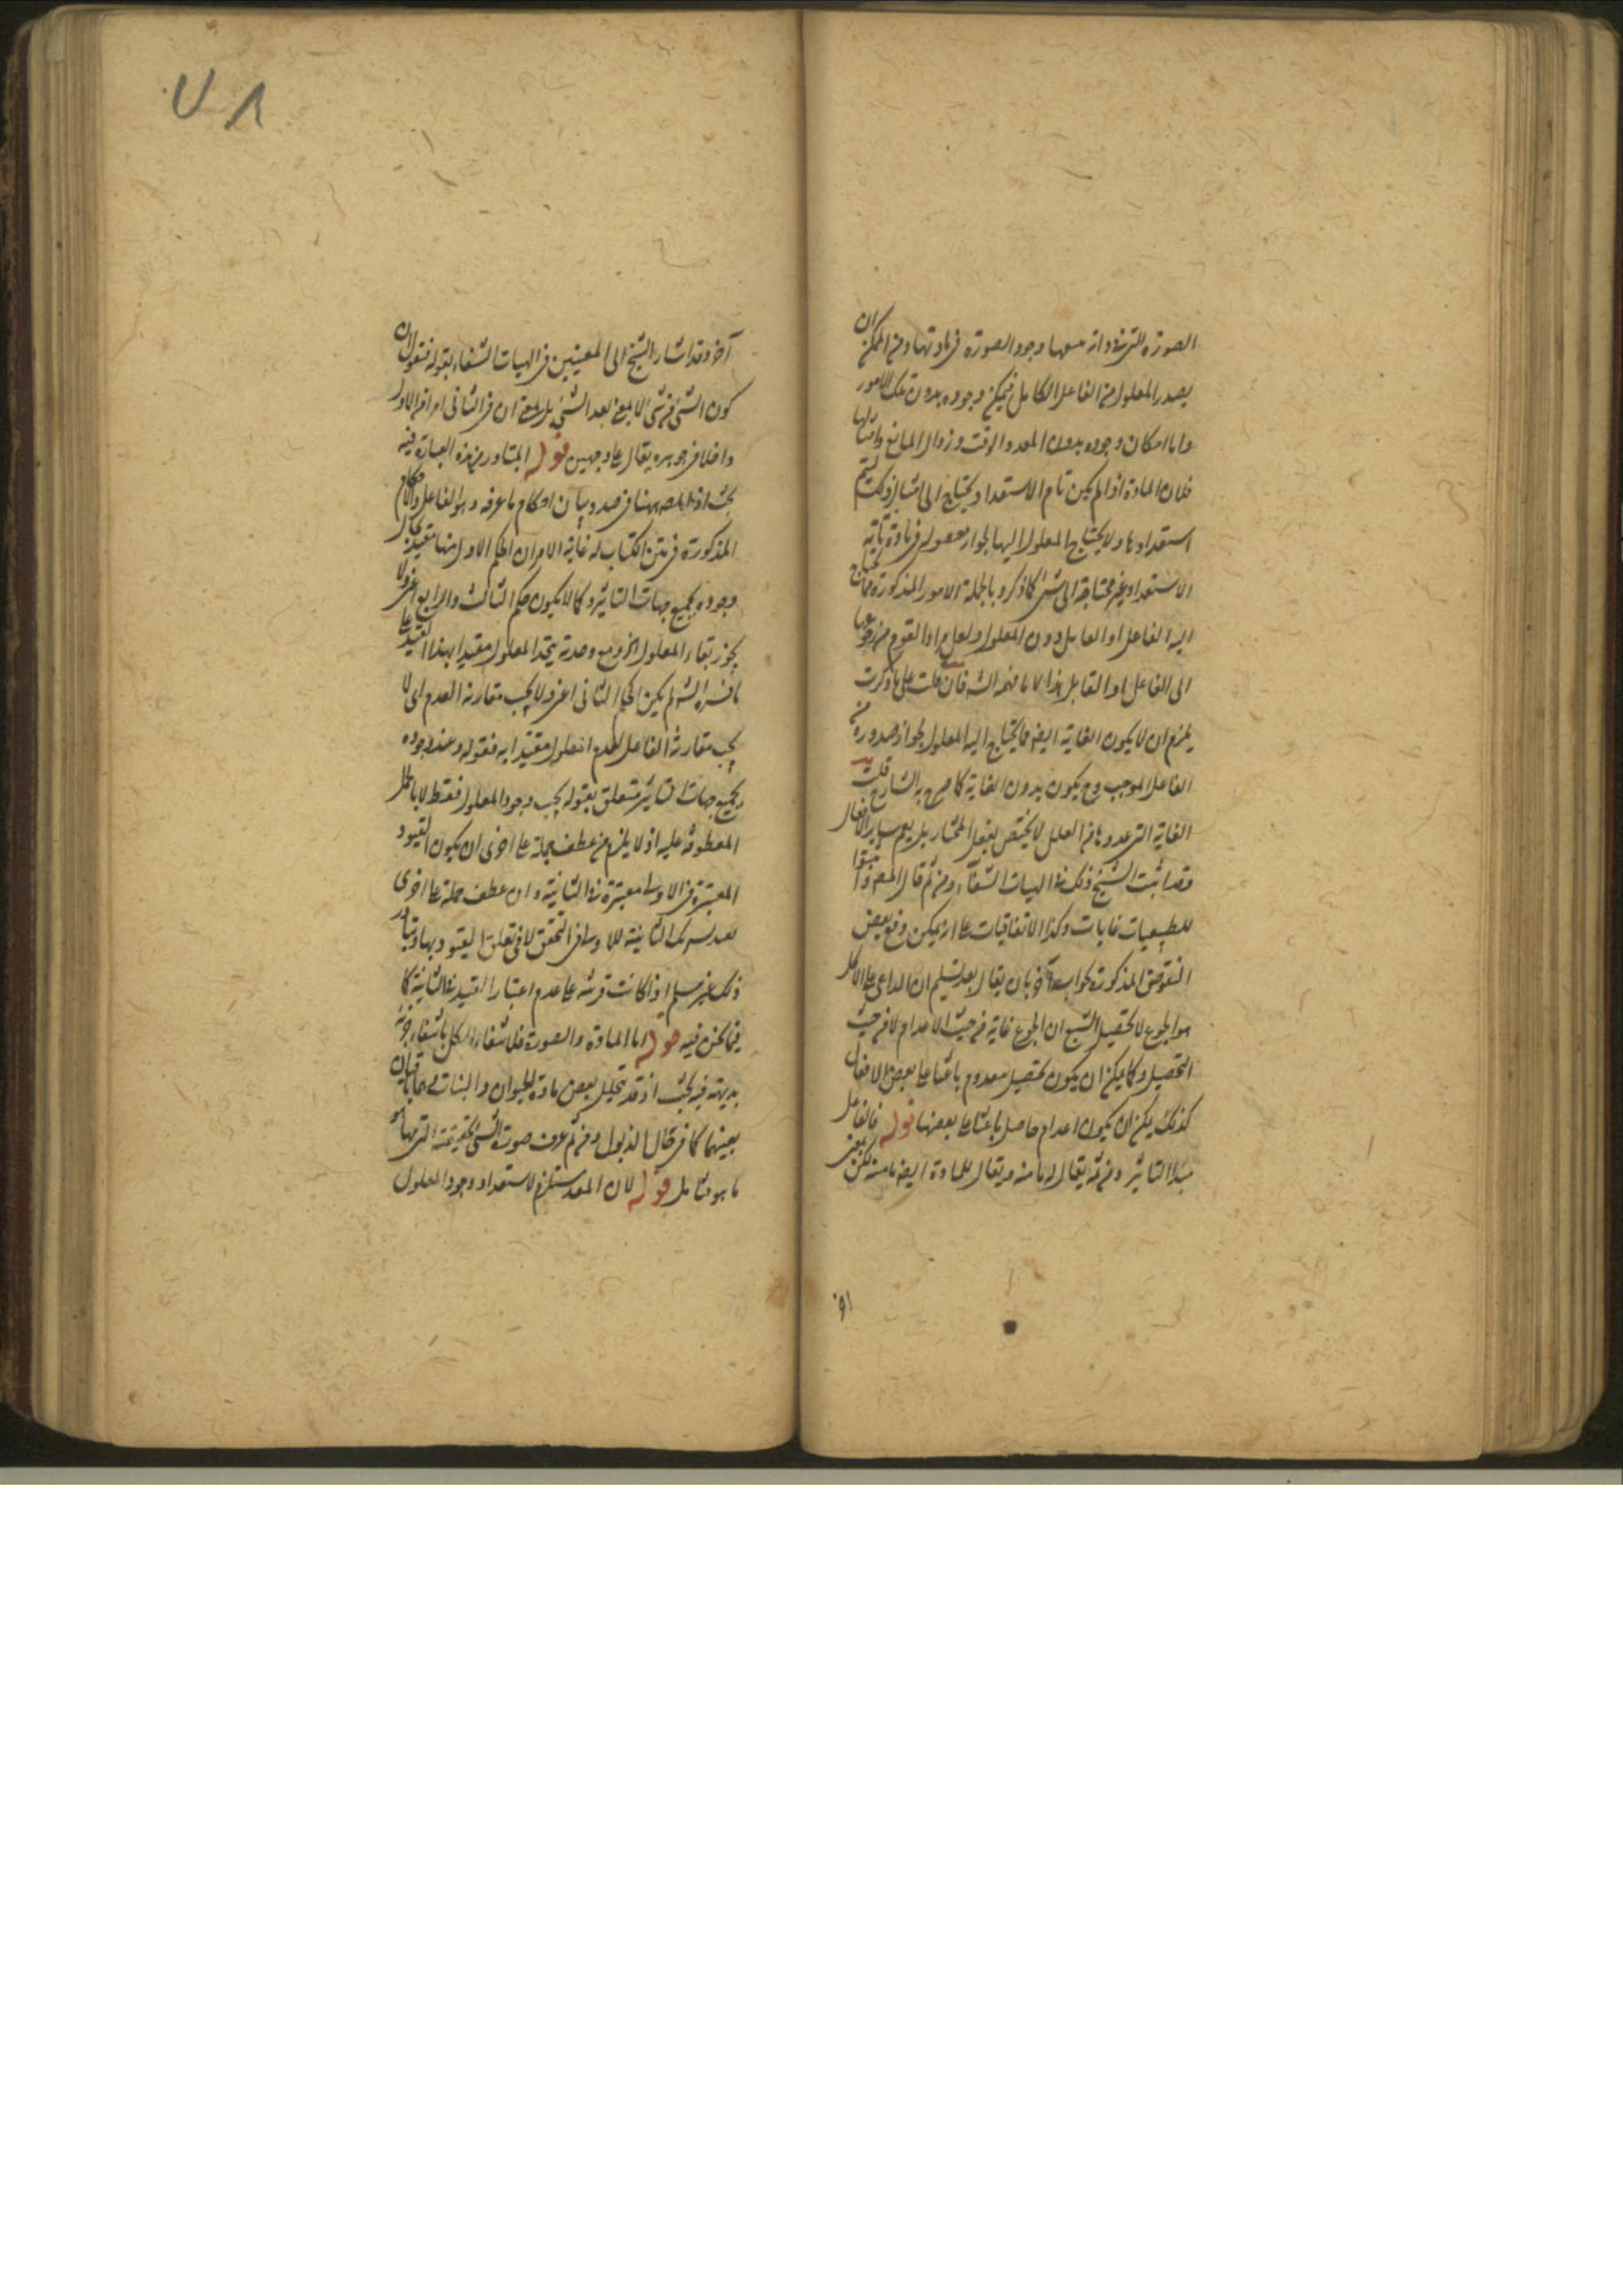 الصورة التى فى ذاته معها وجود الصورة فى مادتها ومن الممكن ان
يصدر المعلول من الفاعل الكامل فيمكن وجوده بدون تلك الامور
واما امكان وجوده بدون المعد والوقت وزوال المانع وامثالها
فلان المادة اذا لم يكن تام الاستعداد ويحتاج الى امثال ذلك ليتم
استعدادها ولا يحتاج المعلول اليها لجواز حصوله فى مادة تامة
الاستعداد غير محتاجة الى شئ كما ذكر وبالجملة الامور المذكورة مما يحتاج
اليه الفاعل او القابل دون المعلول ولعل مراد القوم من رجوعها
الى الفاعل او القابل هذا لا ما فهمه الشه فان قلت على ما ذكرت
يلزم ان لا يكون الغاية ايضا مما يحتاج اليه المعلول لجواز صدوره من
الفاعل الموجب وح يكون بدون الغاية كما صرح به الشارح قلت
الغاية التى عدوها من العلل لا يختص بفعل المختار بل يعم ساير الافعال
وقد اثبت الشيخ ذلك فى الهيات الشفاء ومن ثم قال المص واثبتوا
للطبيعيات غايات وكذا الاتفاقيات على انه يمكن دفع بعض
النقوض المذكورة بان يقال بعد تسليم ان الداعى على الاكل
هو الجوع لا تحصيل الشبع ان الجوع غاية من حيث الاعدام لا من حيث
التحصيل وكما يمكن ان يكون تحصيل معدوم باعثا على بعض الافعال
كذلك يمكن ان يكون اعدام حاصل باعثا على بعضها قوله فالفاعل
مبدأ التاثير ومن ثمه يقال له ما منه ويقال للمادة ايضا ما منه لكن بمعنى
١٩
٧٨
آخر وقد اشار الشيخ الى المعنيين فى الهيات الشفاء بقوله فنقول ان
كون الشئ من شئ لا بمعنى بعد الشئ بل بمعنى ان فى الثانى امرا من الاول
داخلا فى جوهره يقال على وجهين قوله المتبادر من هذه العبارة فيه
بحث اذ المص ههنا فى صدد بيان احكام ما عرفه وهو الفاعل والاحكام
المذكورة فى متن الكتاب له غاية الامر ان الحكم الاول منها مقيد بحال
وجوده بجميع جهات التاثير وكما لا يكون حكم الثالث والرابع اعنى ولا
يجوز بقاء المعلول الخ ومع وحدته يتحد المعلول مقيدا بهذا القيد على
ما فسره الشه لم يكن الحكم الثانى اعنى ولا يجب مقارنة العدم اى لا
يجب مقارنة الفاعل للعدم المعلول مقيدا به فقوله وعند وجوده
بجميع جهات التاثير متعلق بقوله يجب وجود المعلول فقط لا بالجمل
المعطوفة عليه اذ لا يلزم من عطف جملة على اخرى ان يكون القيود
المعتبرة فى الاولى معتبرة فى الثانية وان عطف جملة على اخرى
الثانية للاولى فى التحقق لا فى تعلق القيود بها وتبادر
ذلك غير مسلم اذا كانت قرينة على عدم اعتبار القيد فى الثانية كما
فيما نحن فيه قوله اما المادة والصورة فلانتفاء الكل بانتفاء جزئه
بديهة فيه بحث اذ قد تتحلل بعض مادة الحيوان والنبات وهما باقيان
بعينهما كما فى حال الذبول ومن ثم عرف صورة الشئ بحقيقته التى بها هو
ما هو فتامل قوله لان المعد مستلزم لاستعداد وجود المعلول